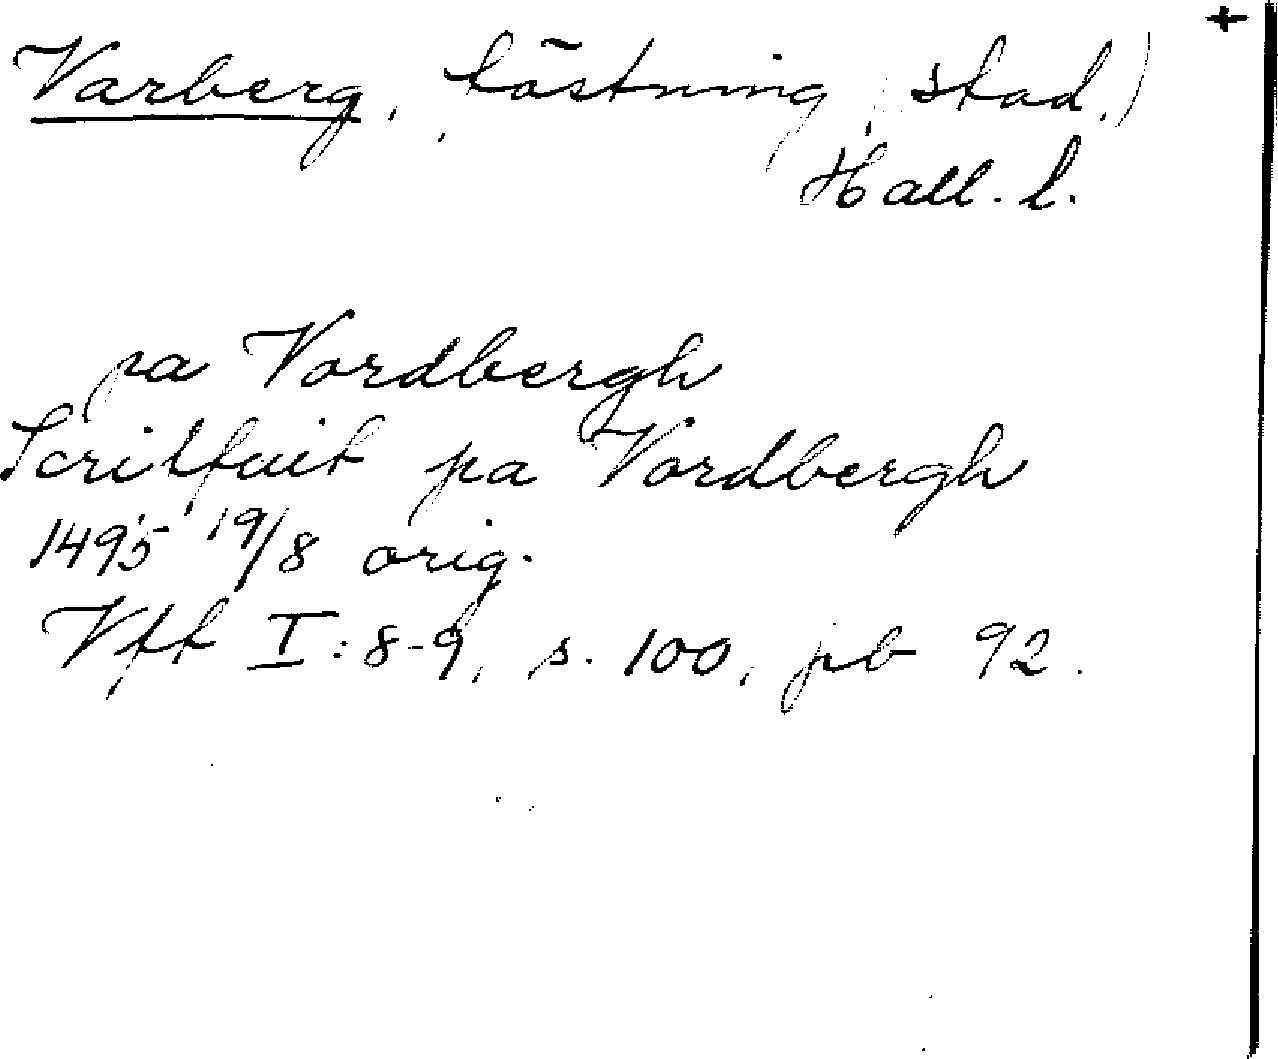 +
Varberg, fästning (stad,)
Hall. l.
pa Vardbergh
Scriffuit pa Vardbergh
1495 19/8 orig.
Vff I:8-9, s. 100, pb 92.